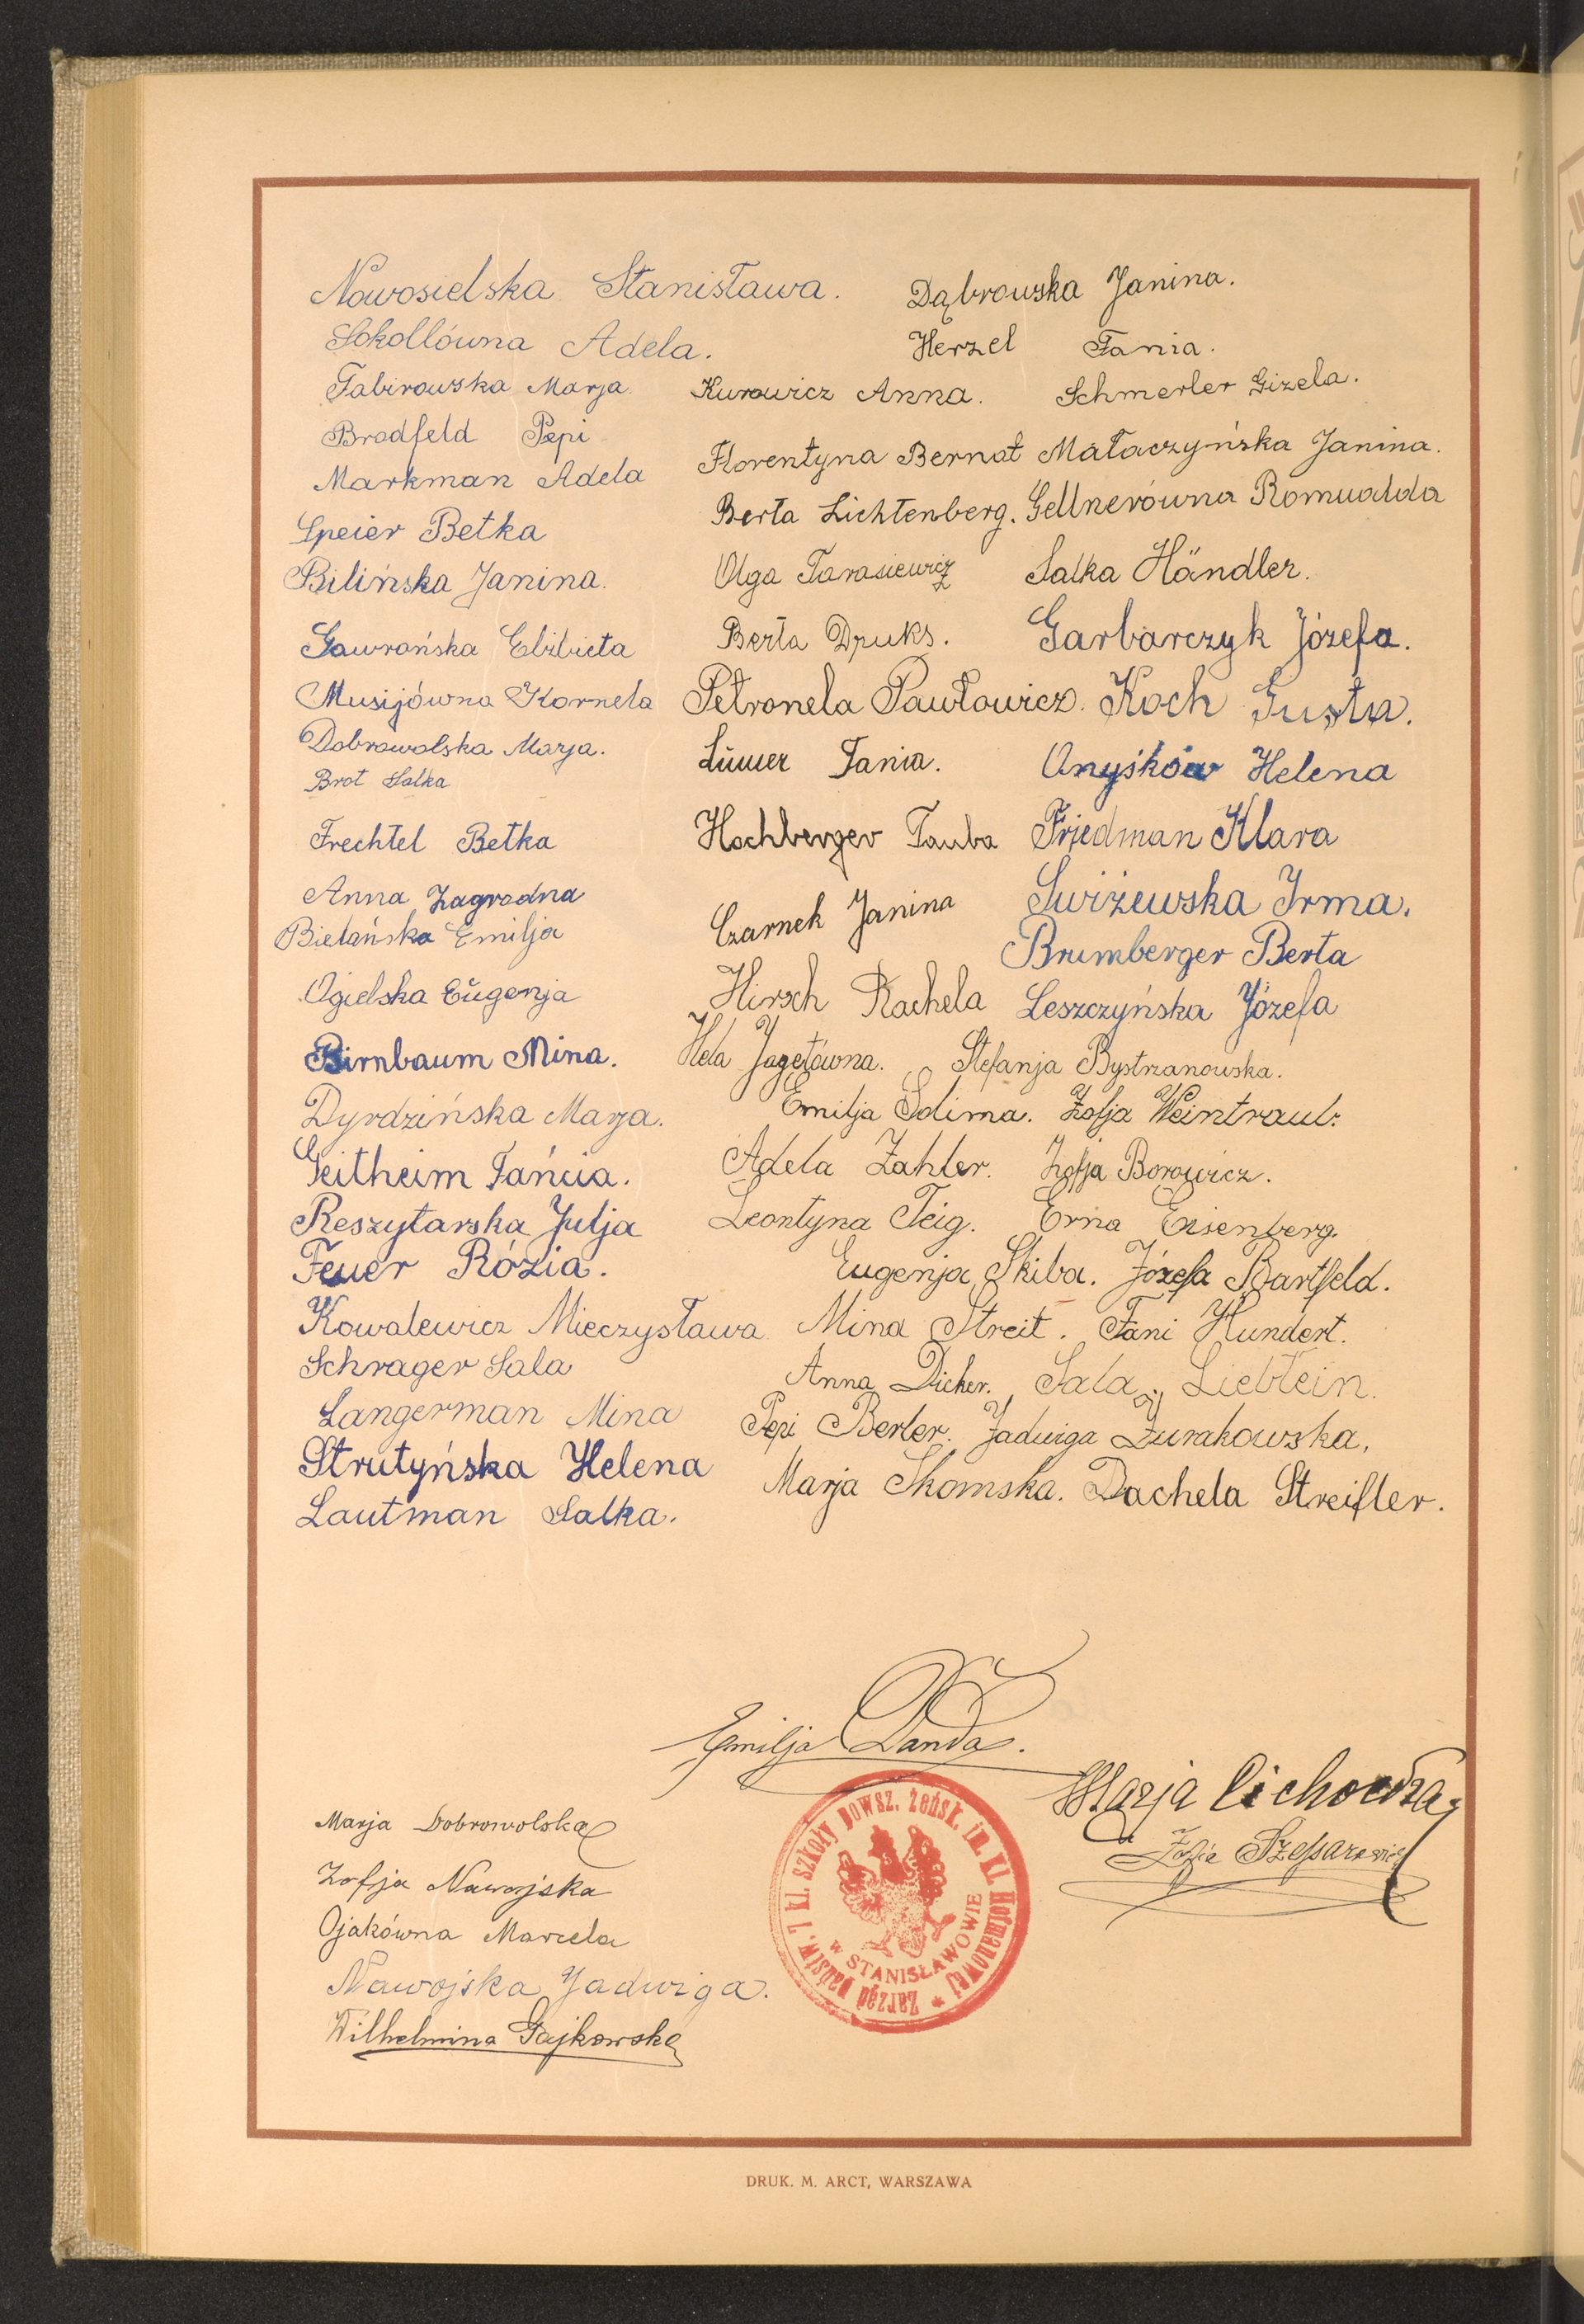 Nowosielska Stanisława. Dąbrowska Janina.
Sokollówna Adela. Herzel Fania.
Tabirowska Marja Kurowicz Anna. Schmerler Gizela.
Brodfeld Pepi
Florentyna Bernat Małaczyńska Janina.
Markman Adela
Berta Lichtenberg. Gellnerówna Romualda
Speier Betka
Bilińska Janina. Olga Tarasiewicz Salka Händler.
Gawrońska Elżbieta Berta Druks. Garbarczyk Józefa.
Musijówna Kornela Petronela Pawłowicz. Koch Gusta.
Dobrowolska Marja. Fania. Onyśków Helena
Brot Salka
Frechtel Betka Hochberger Tauba Friedman Klara
Anna Zagrodna Czarnek Janina Swiżewska Irma.
Bielańska Emilja Brumberger Berta
Ogielska Eugenja Hirsch Rachela Leszczyńska Józefa
Birnbaum Mina. Hela Jagełówna. Stefanja Bystrzanowska.
Dyrdzińska Marja. Emilja Solima. Zofja Weintraub.
Geitheim Fańcia. Adela Zahler. Zofja Borowicz.
Reszytarska Julja Leontyna Teig. Erna Eisenberg.
Feuer Rózia. Eugenja Skiba. Józefa Bartfeld.
Kowalewicz Mieczysława Mina Streit. Fani Hundert.
Schrager Sala Anna Dicker. Sala Liebtein.
Langerman Mina Pepi Berler. Jadwiga Żurakowska,
Strutyńska Helena Marja Skomska. Dachela Streifler.
Lautman Salka.
Emilja Danda.
Marja Cichocka
Marja Dobrowolska
Zofja
Zofja Nawojska
Ojakówna Marcela
Nawojska Jadwiga.
Wilhelmina Gajkowska
Zarząd państw. 7 kl. szkoły powsz. żeńsk. im. Kl. Hofmanowej *
W STANISŁAWOWIE
DRUK. M. ARCT, WARSZAWA